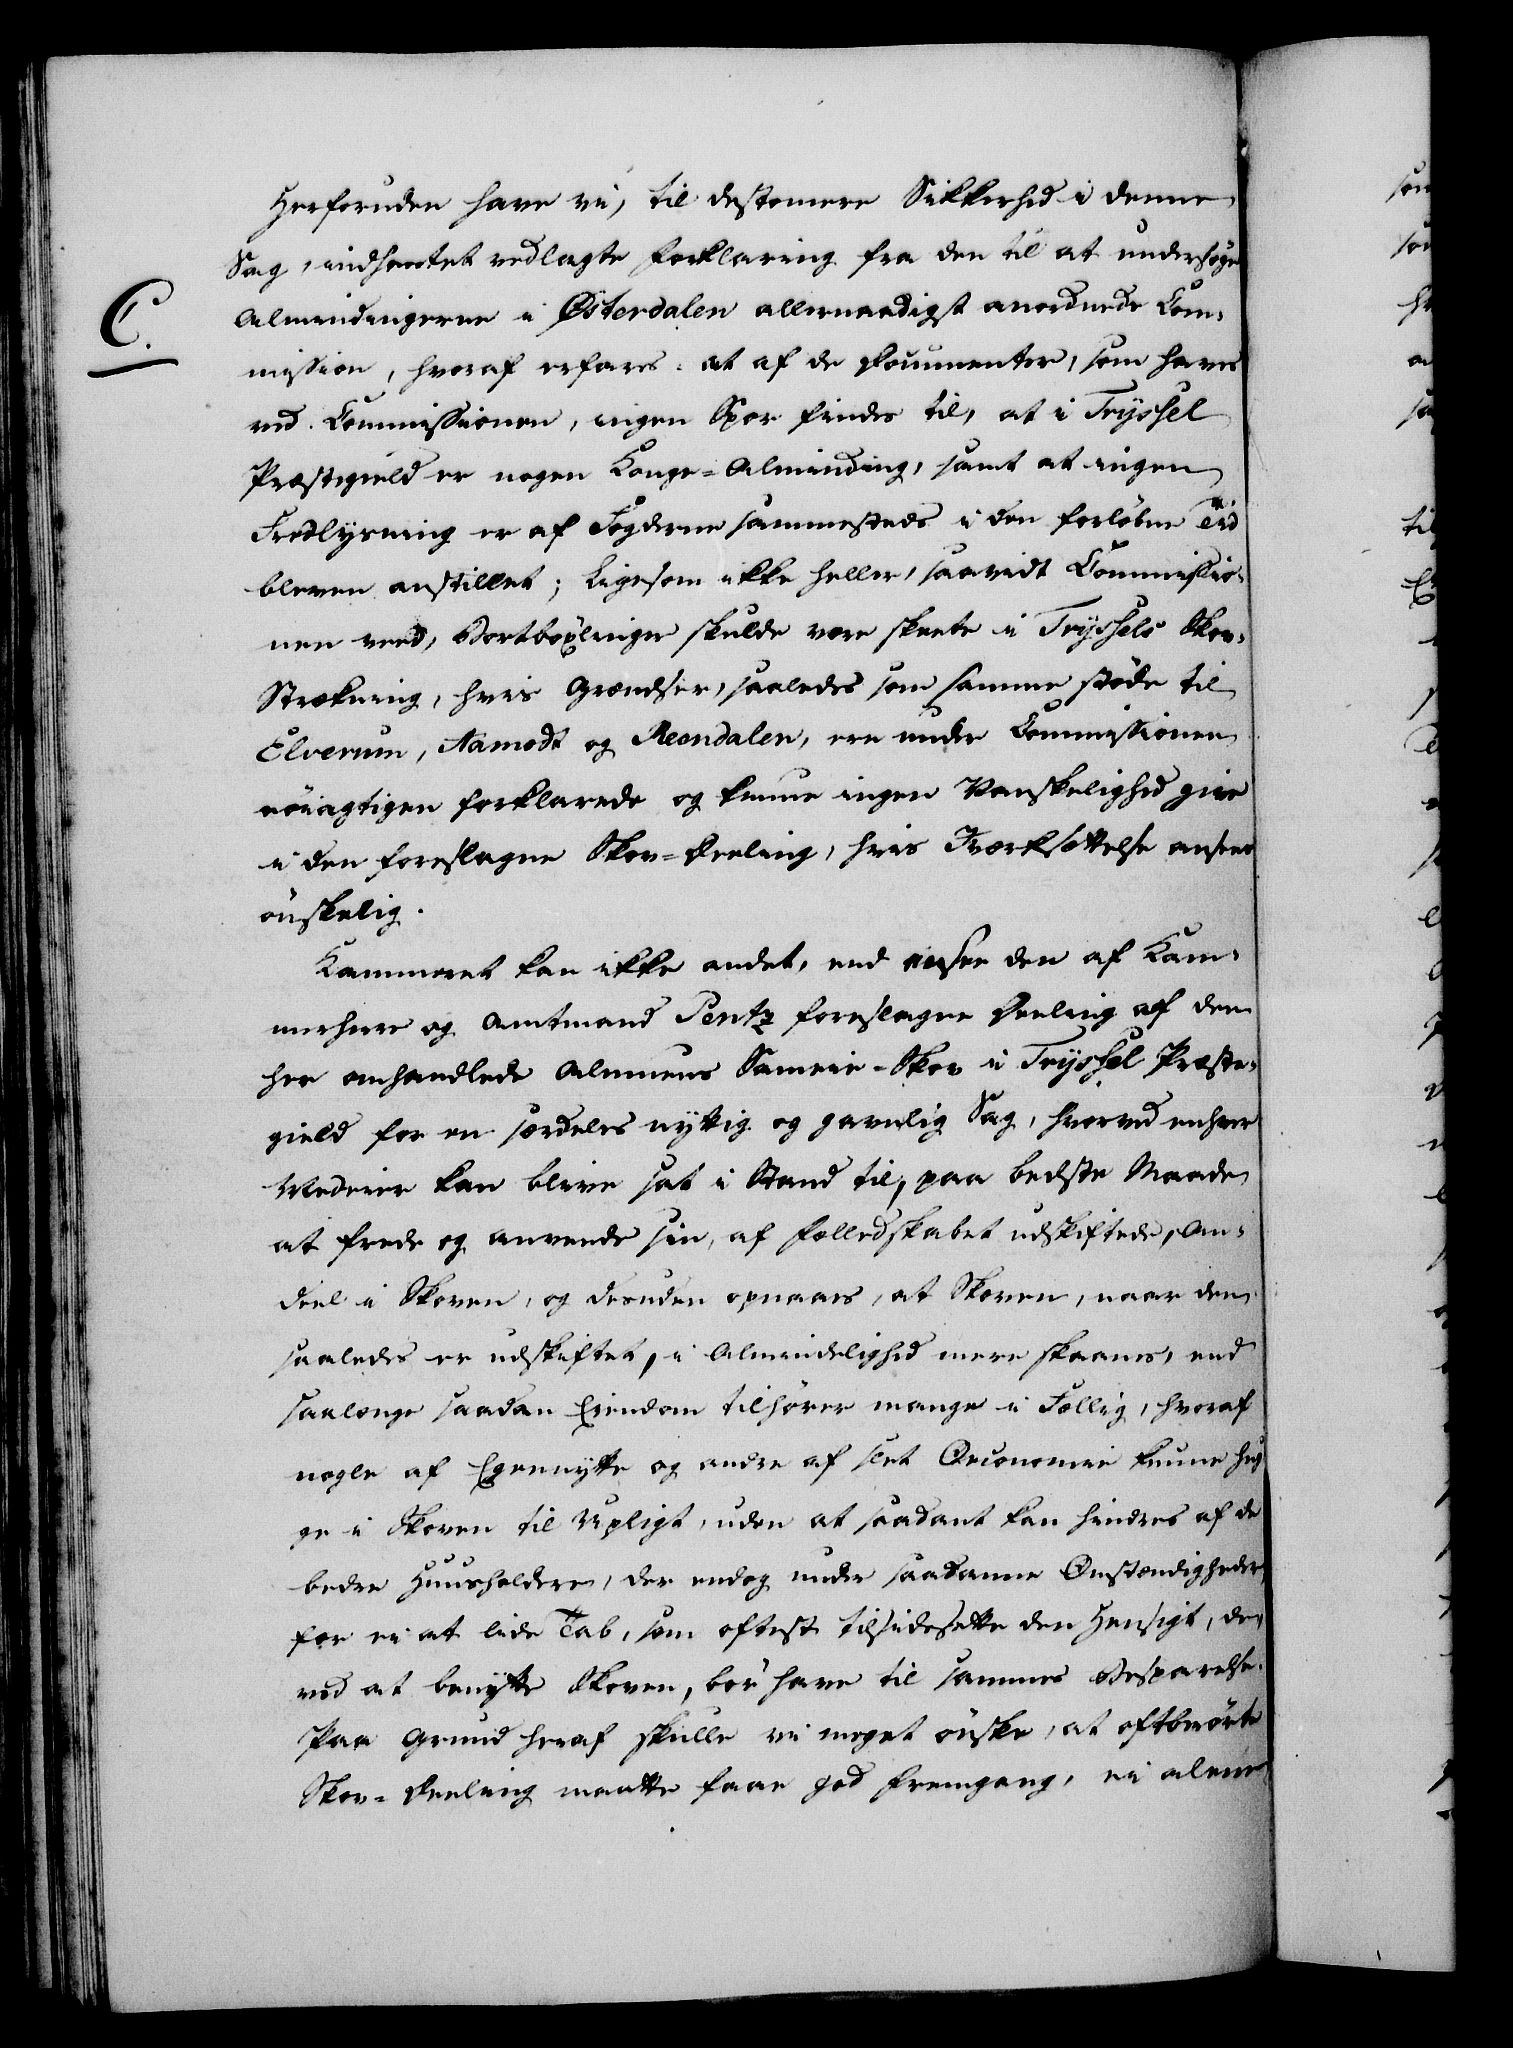 Herforuden have vi, til destomere Sikkerhed i denne
Sag, indhentet vedlagte Forklaring fra den til at undersøge
C.
Almindingerne i Østerdalen allernaadigst anordnede Com-
mission, hvoraf erfares: at af de Documenter, som haves
ved Commissionen, ingen Spor findes til, at i Tryssel
Præstegield er nogen Konge-Alminding, samt at ingen
Fredlysning er af Fogderne sammesteds i den forløbne Tid
bleven anstillet; ligesom ikke heller, saavidt Commissio-
nen veed, Bortbøxlinger skulde være skeete i Tryssels Skov-
Strækning, hvis Grændser, saaledes som samme støde til
Elverum, Aamodt og Reendalen, ere under Commissionen
nöiagtigen forklarede og kunne ingen Vanskelighed give
i den foreslagne Skov-Deeling, hvis Iværksættelse ansees
önskelig.
Kammeret kan ikke andet, end ansee den af Kam-
merherre og Amtmand Pentz foreslagne Deeling af den
her omhandlede Almuens Sameie-Skov i Tryssel Præste-
gield for en særdeles nyttig og gavnlig Sag, hvorved enhver
Medeier kan blive sat i Stand til, paa bedste Maade
at frede og anvende sin, af Fælledskabet udskiftede, An-
deel i Skoven, og desuden opnaaes, at Skoven, naar den
saaledes er udskiftet, i Almindelighed mere skaanes, end
saalænge saadan Eiendom tilhører mange i Fællig, hvoraf
nogle af Egennytte og andre af slet Oeconomie kunne hug-
ge i Skoven til Upligt, uden at saadant kan hindres af de
bedre Huusholdere, der endog under saadanne Omstændigheder,
for ei at lide Tab, som oftest tilsidesætte den Hensigt, de,
ved at benytte Skoven, bör have til sammes Besparelse.
Paa Grund heraf skulle vi meget önske, at oftberörte
Skov-Deeling maatte faae god Fremgang, ei alene